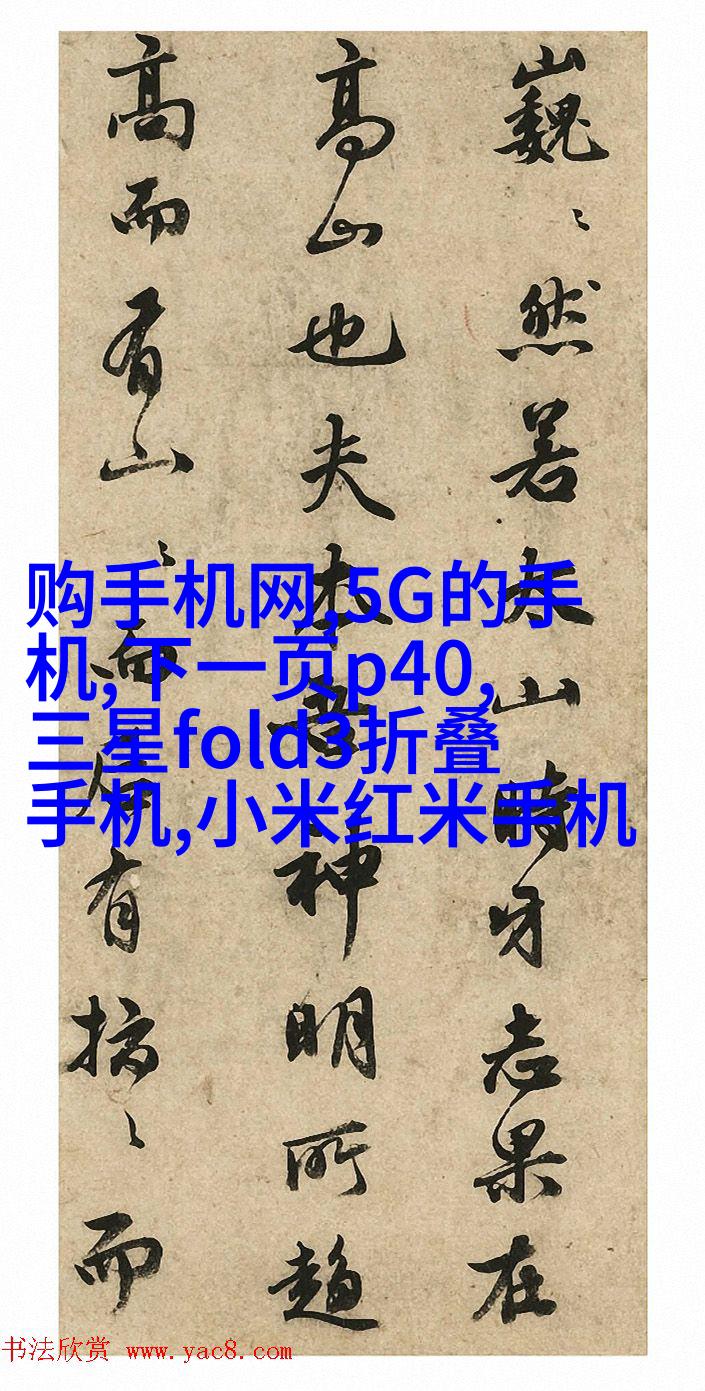 巍〻然若太山時牙志果在
高山也夫神明所趨
高而有山〻而居有〻而
购手机网,5G的手
机,下一页p40,
三星fold3折叠
手机,小米红米手机
书法欣赏 www.yac8.com